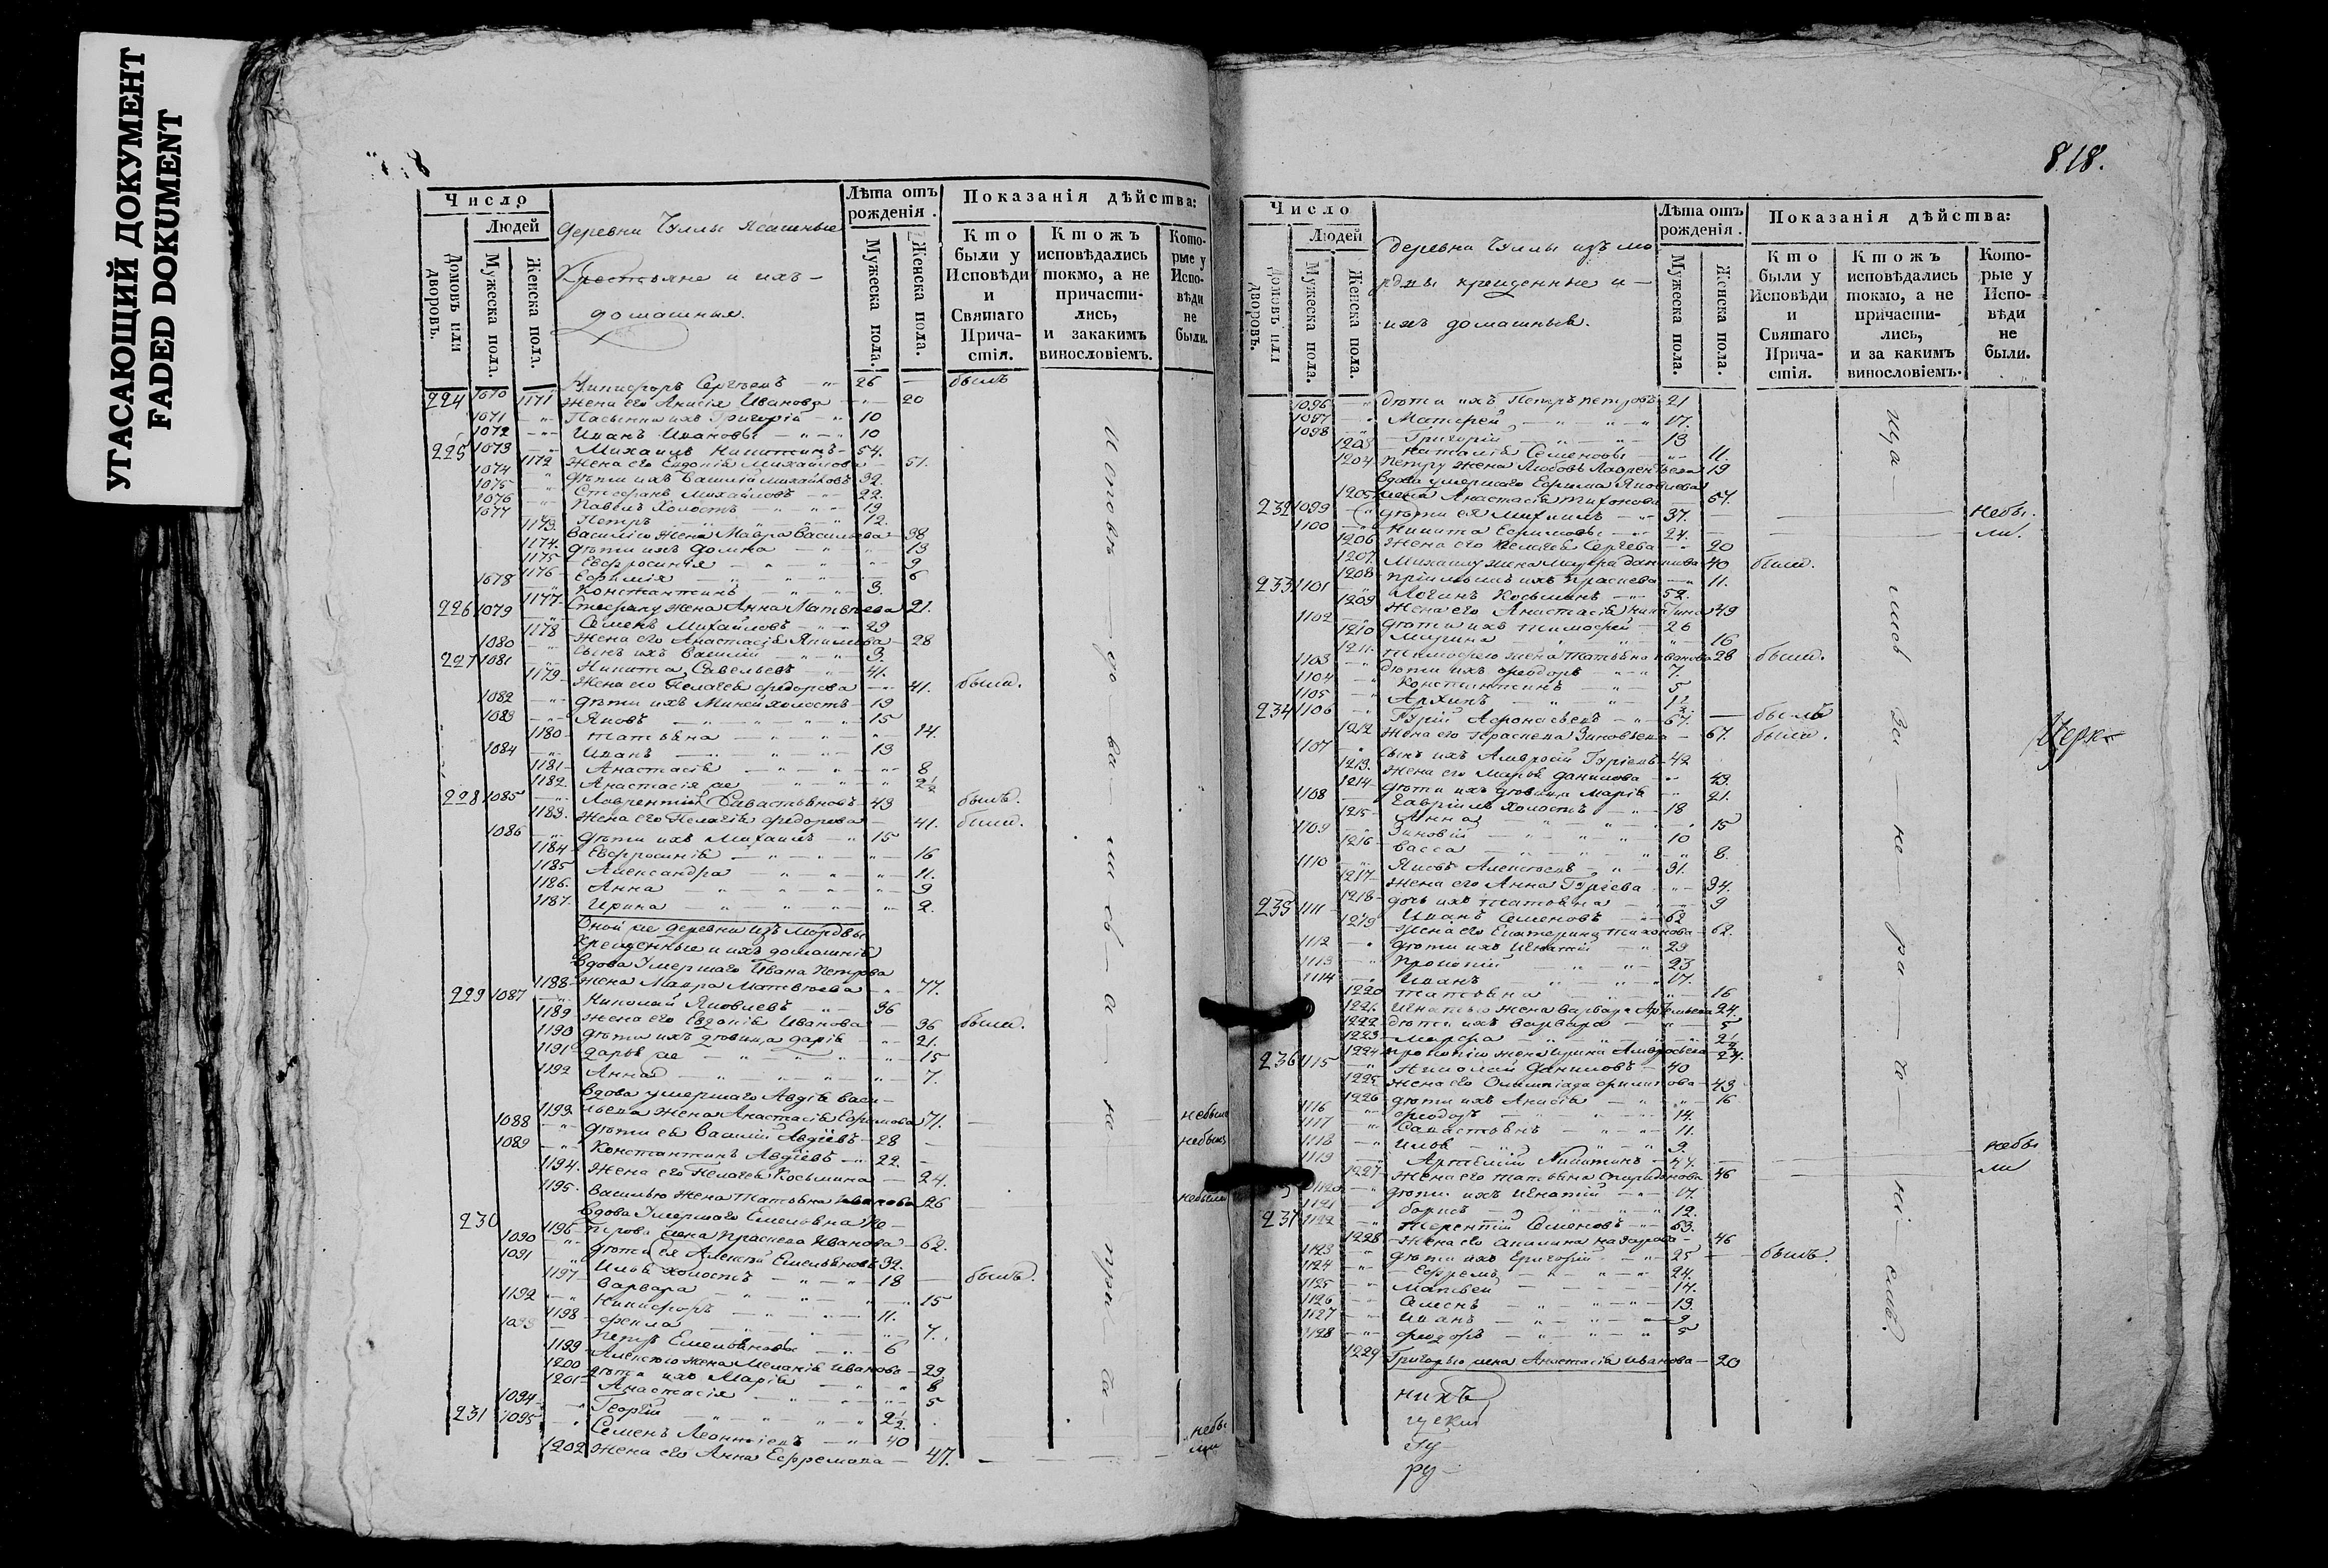 УГАСАЮЩИЙ ДОКУМЕНТ
FADED DOKUMENT
Число
Людей
Домовъ или дворовъ.
Мужеска пола.
Женска пола.
деревни Чуллы ясашные
Крестьяне и ихъ
домашныя.
Лѣта отъ рожденія.
Мужеска пола.
Женска пола.
Показанія дѣйства:
Кто были у Исповѣди и Святаго Причастія.
Ктожъ исповѣдались токмо, а не причастились, и закакимъ винословіемъ.
Которые у Исповѣди не были.
224 1070 Никифоръ Сергѣевъ 26 былъ
1171 Жена его Анисія Иванова 20
1071 Пасынки ихъ Григорій 10
1072 Иванъ Ивановы 10
225 1073 Михаилъ Никитинъ 54.
1172 Жена его Евдокія Михайлова 51.
1074 дѣти ихъ Василій Михайловъ 32.
1075 Стефанъ Михайловъ 22.
1076 Павелъ Холостъ 19
1077 Петръ 12.
1173. Василію жена Мавра Васильева 38
1174. дѣти ихъ Домна 13
1175 Евфросинія 9
1176 Ефимія 6
1078 Константинъ 3.
1177 Стефану жена Анна Матвѣева 21.
226 1079 Семенъ Михайловъ 29
1178 Жена его Анастасія Якимова 28
1080 Сынъ ихъ Василій 3.
227 1081 Никита Савельевъ 41.
1179 Жена его Пелагея федорова 41. была.
1082 дѣти ихъ Миней холостъ 19
1083 Яковъ 15
1180 Татьяна 14.
1084 Иванъ 13
1181 Анастасія 8
1182. Анастасія же 2½
228 1085 Лаврентій Савастьяновъ 43 былъ.
1183. Жена его Пелагія федорова 41. была.
1086 дѣти ихъ Михаилъ 15
1184 Евфросинія 16
1185 Александра 11.
1186. Анна 9
1187. Ирина 2.
Оной же деревни изъ Мордвы
крещенные и ихъ домашнія
Вдова Умершаго Ивана Петрова
1188 жена Мавра Матвѣева 77.
229 1087 Николай Яковлевъ 36
1189 Жена его Евдокія Иванова 36 была.
1190 дѣти ихъ дѣвица дарія 21.
1191 дарья же 15
1192 Анна 7.
Вдова умершаго Авдія Васи-
1193. льева жена Анастасія Ефимова 71. небыла
1088 дѣти ея Василій Авдіевъ 28 небылъ
1089 Константинъ Авдіевъ 22.
1194. Жена его Пелагея Косьмина 24.
1195. Василью жена Татьяна Иванова 26 небыла
230 Вдова Умершаго Емельяна Пе-
1196 трова жена Праскева Иванова 62.
1090 дѣти ея Алексѣй Емельяновъ 32.
1091 Илья холостъ 18 былъ.
1197 Варвара 15
1192 Никифоръ 11.
1198 фекла 7.
1093 Петръ Емельяновы 6
1199 Алексѣю жена Меланія Иванова 29
1200 дѣти ихъ Марія 8
1201 Анастасія 5
1094 Георгій 2½
231 1095 Семенъ Леонтіевъ 40 небы
1202 Жена его Анна Ефремова 47. ли
818.
Число
Людей
Домовъ или дворовъ.
Мужеска пола.
Женска пола.
деревни Чуллы изъ мо
рдвы крещенные и
ихъ домашныя.
Лѣта отъ рожденія.
Мужеска пола.
Женска пола.
Показанія дѣйства:
Кто были у Исповѣди и Святаго Причастія.
Ктожъ исповѣдались токмо, а не причастились, и за какимъ винословіемъ.
Которые у Исповѣди не были.
1096 дѣти ихъ Петръ петровъ 21
1097 Матфей 17.
1098 Григорій 13
1203 Наталія Семеновы 11.
1204 Петру жена Любовь Лаврентьева 19
Вдова умершаго Ефима Яковлева
1205 жена Анастасія Тихонова 57.
232 1099 дѣти ея Михаилъ 37. небы.
1100 Никита Ефимовы 24. ли.
1206 Жена его Пелагея Сергѣева 20
1207 Михаилу жена Марья данилова 40 была.
1208 пріимышъ ихъ Праскева 11.
233 1101 Логинъ Косьминъ 52.
1209 Жена его Анастасія Никитина 49
1102 дѣти ихъ Тимофей 26
1210 Марина 16
1211 Тимофею жена Татьяна Иванова 28 была.
1103 дѣти ихъ феодоръ 7.
1104 Константинъ 5
1105 Архипъ 1½
234 1106 Гурій Афонасьевъ 67. былъ
1212 Жена его Праскева Зиновьева 67. была.
1107 Сынъ ихъ Амвросій Гуріевъ 42
1213. Жена его Марья данилова 43.
1214 дѣти ихъ дѣвица Марія 21.
1108 Гавріилъ холостъ 18
1215 Анна 15
1109 Зиновій 10
1216 Васса 8.
1110 Яковъ Алексѣевъ 31.
1217 Жена его Анна Гуріева 34.
1218 дочь ихъ Татьяна 9
235 1111 Иванъ Семеновъ 62
1219 Жена его Екатерина Тихонова 62.
1112 дѣти ихъ Игнатій 29
1113 Прокопій 23
1114 Иванъ 17.
1220 Татьяна 16
1221 Игнатью жена Варвара 24.
1222 дѣти ихъ Варвара 5
1223 Марфа 2½
1224 Прокопію жена Ирина Амвросьева 24.
236 1115 Николай Даниловъ 40
1225 Жена его Олимпіада филипова 43
1226 дѣти ихъ Анисія 16
1116 феодоръ 14.
1117 Савастьянъ 11.
1118 Илья 9.
1119 Артемій Никитинъ 44. небы
1227 Жена его Татьяна Спиридонова 46 ли
1120 дѣти ихъ Игнатій 17.
1121 борисъ 12.
237 1122 Терентій Семеновъ 63.
1228 Жена его Акилина Назарова 46
1123 дѣти ихъ Григорій 25 былъ.
1124 Ефремъ 24.
1125 Матвей 14.
1126 Семенъ 13.
1127 Иванъ 9
1128 феодоръ 5
1229 Григорью жена Анастасія Иванова 20
нихъ
ру